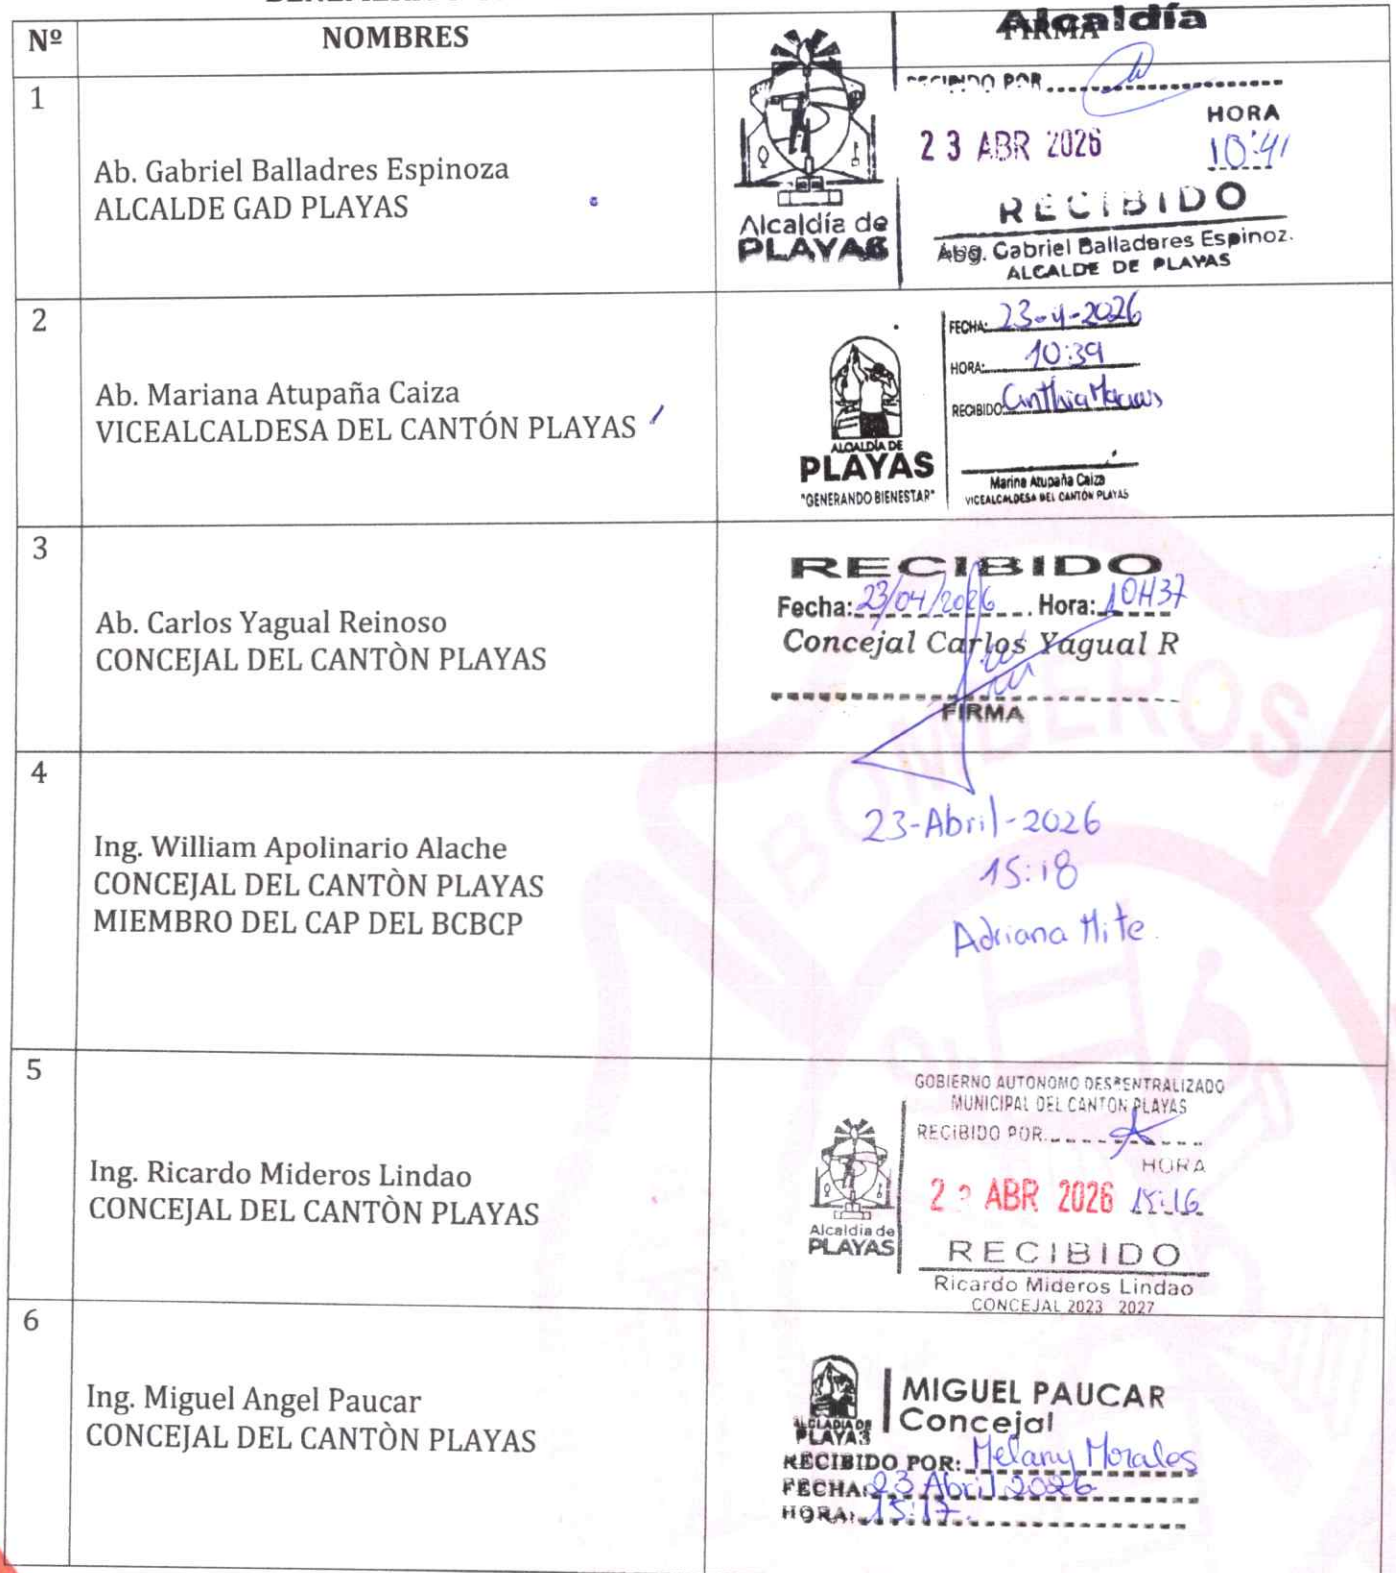 Nº
NOMBRES
FIRMA
Alcaldía
1
Ab. Gabriel Balladres Espinoza
ALCALDE GAD PLAYAS
Alcaldía de
PLAYAS
RECIBIDO POR
HORA
23 ABR 2026
10:41
RECIBIDO
Abg. Gabriel Balladares Espinoz.
ALCALDE DE PLAYAS
2
Ab. Mariana Atupaña Caiza
VICEALCALDESA DEL CANTÓN PLAYAS
ALCALDÍA DE
PLAYAS
"GENERANDO BIENESTAR"
FECHA: 23-4-2026
HORA: 10:39
RECIBIDO: Cinthia Macias
Marina Atupaña Caiza
VICEALCALDESA DEL CANTÓN PLAYAS
3
Ab. Carlos Yagual Reinoso
CONCEJAL DEL CANTÒN PLAYAS
RECIBIDO
Fecha: 23/04/2026 Hora: 10H37
Concejal Carlos Yagual R
FIRMA
4
Ing. William Apolinario Alache
CONCEJAL DEL CANTÒN PLAYAS
MIEMBRO DEL CAP DEL BCBCP
23-Abril-2026
15:18
Adriana Mite.
5
Ing. Ricardo Mideros Lindao
CONCEJAL DEL CANTÒN PLAYAS
GOBIERNO AUTONOMO DESCENTRALIZADO
MUNICIPAL DEL CANTON PLAYAS
RECIBIDO POR
HORA
2 ABR 2026 15:16
RECIBIDO
Ricardo Mideros Lindao
CONCEJAL 2023 2027
Alcaldía de
PLAYAS
6
Ing. Miguel Angel Paucar
CONCEJAL DEL CANTÒN PLAYAS
ALCLADIA DE
PLAYAS
MIGUEL PAUCAR
Concejal
RECIBIDO POR: Melany Morales
FECHA: 23 Abril 2026
HORA: 15:17.
BOMBEROS